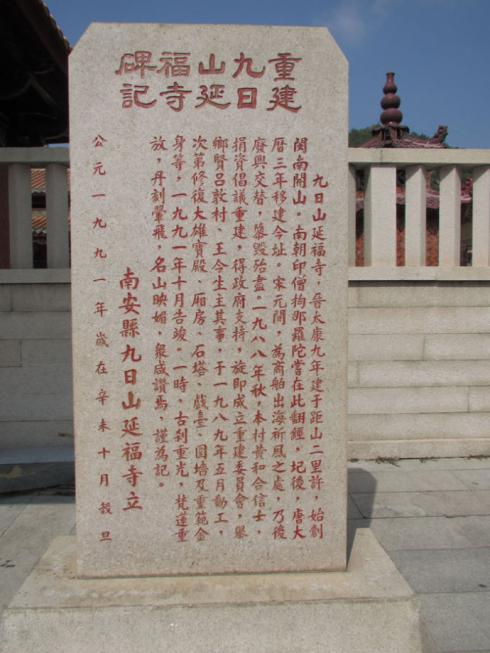 重建九日山延福寺碑記
九日山延福寺，晉太康九年建于距山二里許，始創
閩南開山。南朝印僧拘那羅陀嘗在此翻經，圮後，唐大
曆三年移建今址。宋元間，為商舶出海祈風之處，乃後
廢興交替，纂毀殆盡。一九八八年秋，本村黃和合信士，
捐資倡議重建，得政府支持，旋即成立重建委員會，舉
鄉賢呂敦村、王今生主其事，于一九八九年五月動工，
次第修復大雄寶殿、廂房、石塔、戲臺、圍墻及重範金
身等，一九九一年十月告竣。一時，古刹重光，梵蓮重
放，丹刻翬飛，名山映媚，衆咸讚焉，謹為記。
南安縣九日山延福寺立
公元一九九一年歲在辛未十月穀旦